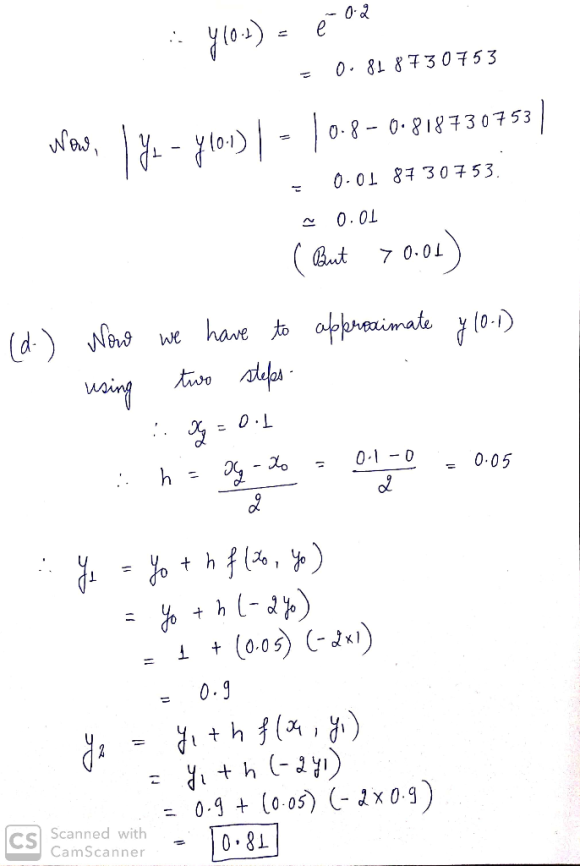 ∴ y(0.1) = e^{-0.2}
= 0.818730753
Now, |y₁ - y(0.1)| = |0.8 - 0.818730753|
= 0.018730753.
≃ 0.01
(But > 0.01)
(d.) Now we have to approximate y(0.1)
using two steps.
∴ x₂ = 0.1
∴ h = (x₂ - x₀)/2 = (0.1 - 0)/2 = 0.05
∴ y₁ = y₀ + h f(x₀, y₀)
= y₀ + h(-2y₀)
= 1 + (0.05) (-2×1)
= 0.9
y₂ = y₁ + h f(x₁, y₁)
= y₁ + h (-2y₁)
= 0.9 + (0.05) (-2×0.9)
= 0.81
CS Scanned with
CamScanner